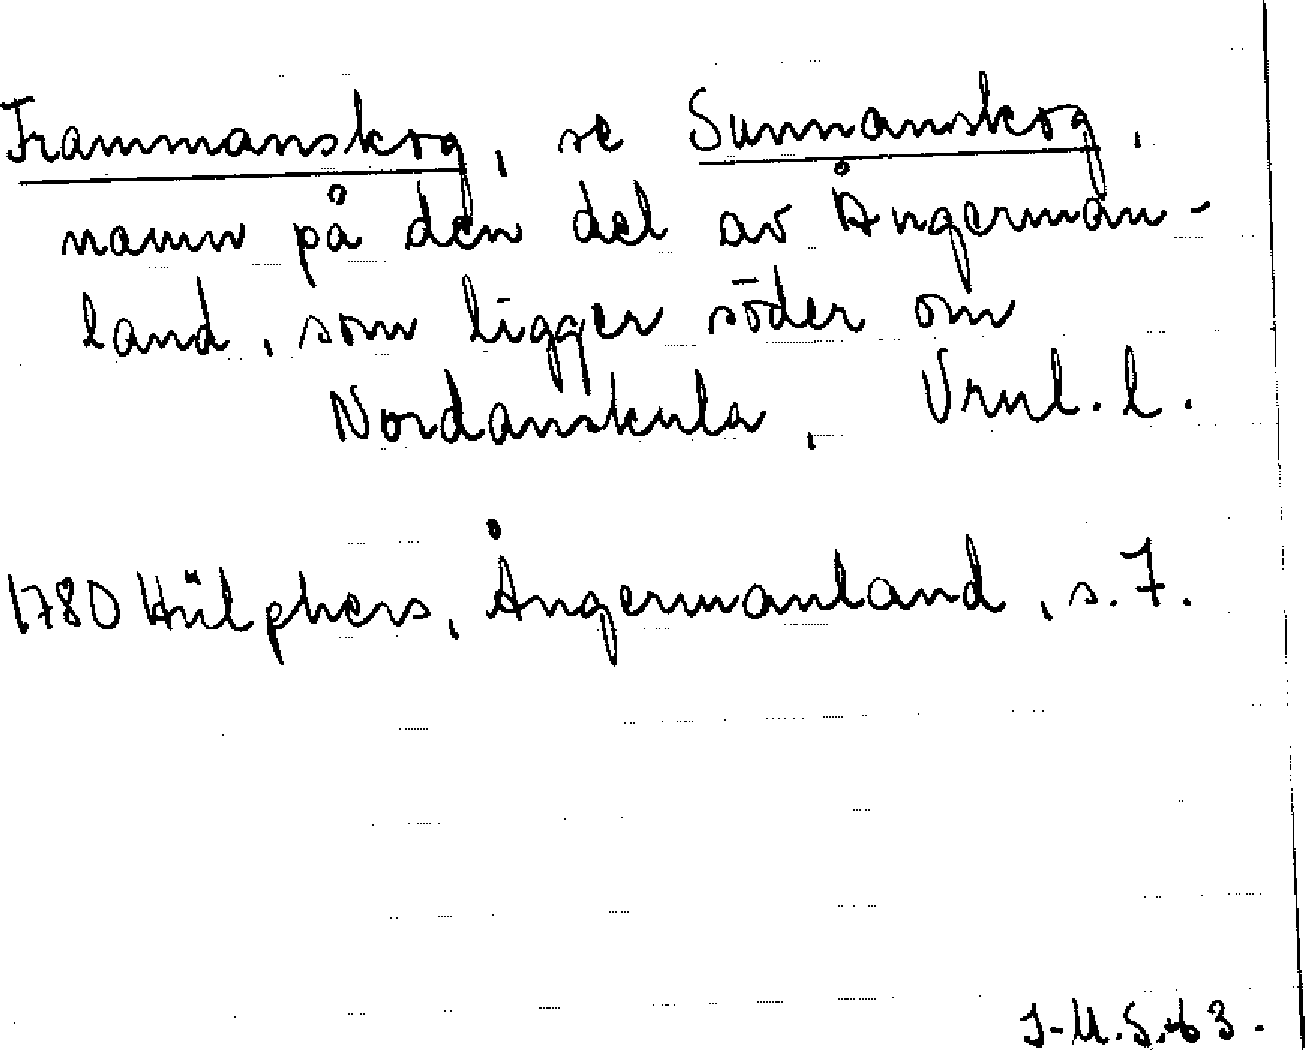 Frammanskog, se Sunnanskog,
namn på den del av Ångerman-
land, som ligger söder om
Nordanskula, Vrml. l.
1780 Hülphers, Ångermanland, s. 7.
J-U.S. 63.